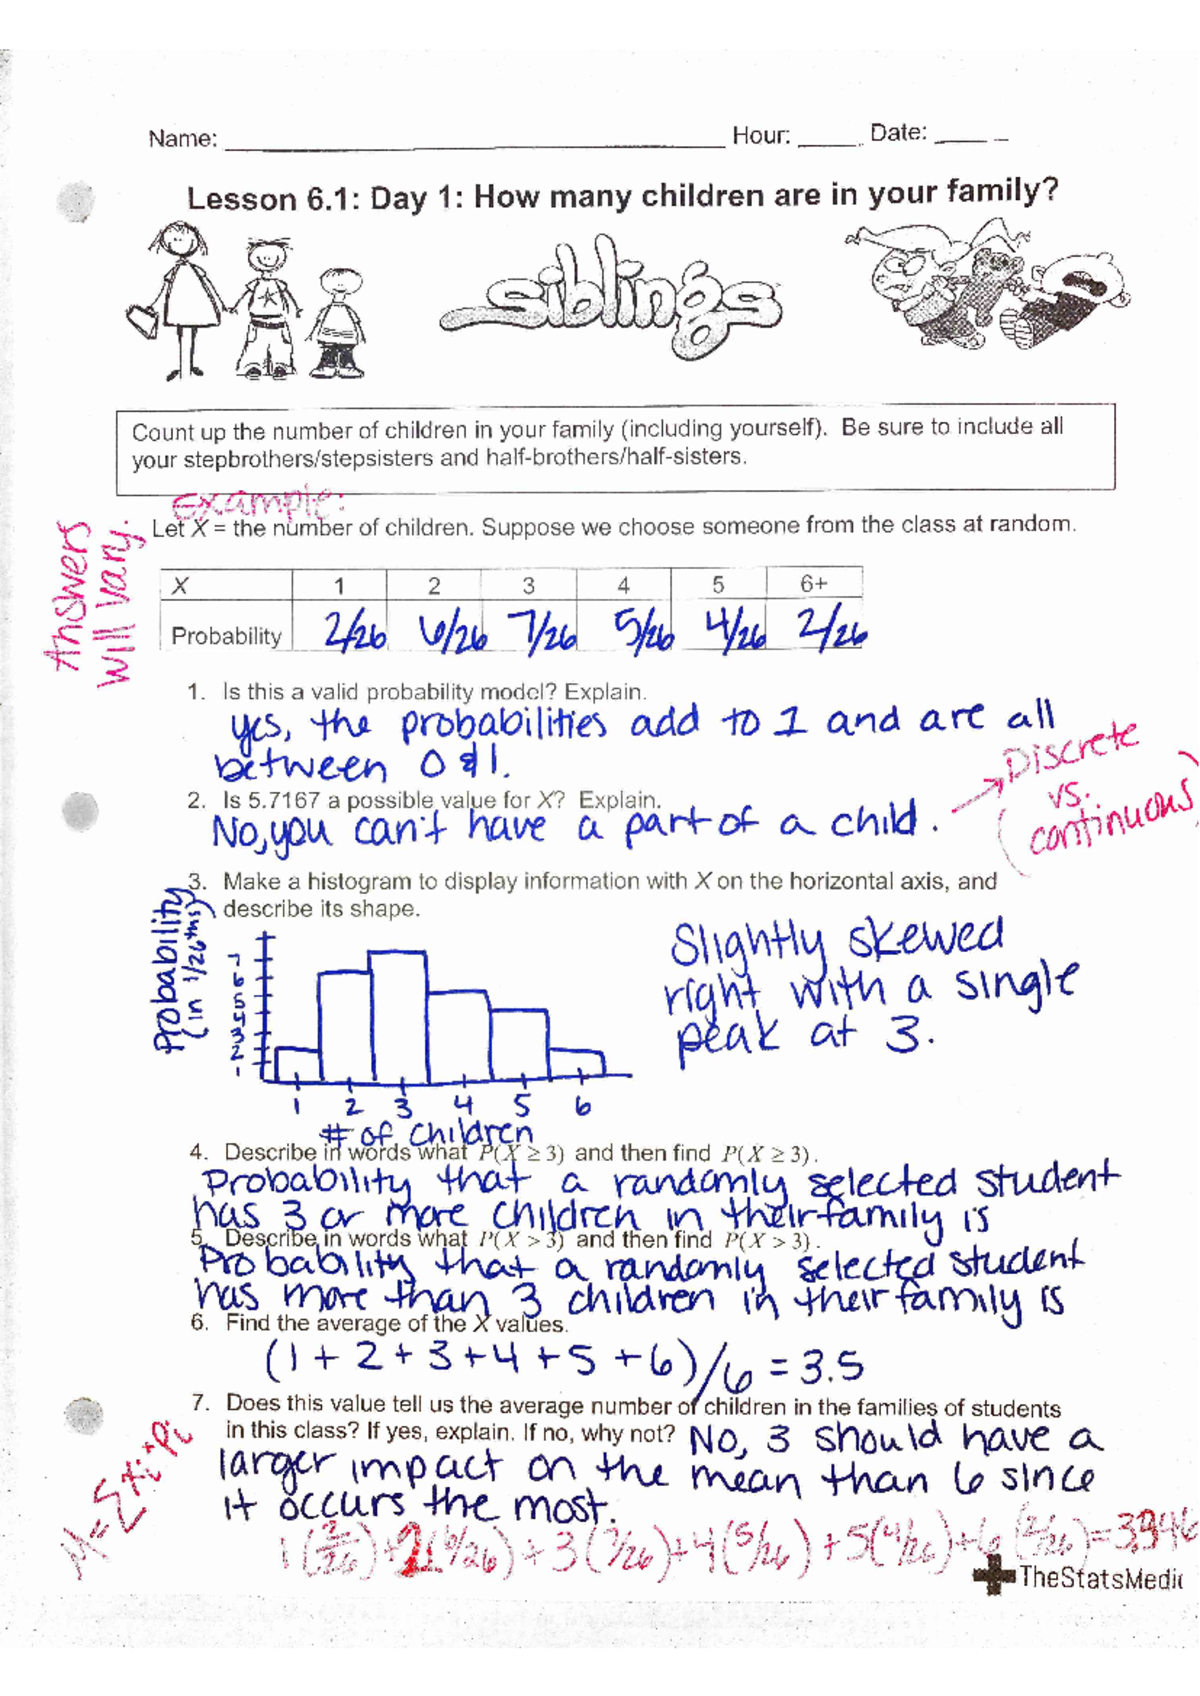 Name: ____ Hour: ____ Date: ____
Lesson 6.1: Day 1: How many children are in your family?
siblings
Count up the number of children in your family (including yourself). Be sure to include all
your stepbrothers/stepsisters and half-brothers/half-sisters.
Example:
Answers
will vary.
Let X = the number of children. Suppose we choose someone from the class at random.
X 1 2 3 4 5 6+
Probability 2/26 6/26 7/26 5/26 4/26 2/26
1. Is this a valid probability model? Explain.
yes, the probabilities add to 1 and are all
between 0 & 1.
2. Is 5.7167 a possible value for X? Explain.
No, you can't have a part of a child.
Discrete
vs.
continuous
3. Make a histogram to display information with X on the horizontal axis, and
describe its shape.
Probability
(in 1/26ths)
7
6
5
3
2
1 2 3 4 5 6
# of children
Slightly skewed
right with a single
peak at 3.
4. Describe in words what P(X ≥ 3) and then find P(X ≥ 3).
Probability that a randomly selected student
has 3 or more children in their family is
5. Describe in words what P(X > 3) and then find P(X > 3).
Probability that a randomly selected student
has more than 3 children in their family is
6. Find the average of the X values.
(1 + 2 + 3 + 4 + 5 + 6)/6 = 3.5
7. Does this value tell us the average number of children in the families of students
in this class? If yes, explain. If no, why not? No, 3 should have a
larger impact on the mean than 6 since
it occurs the most.
M = Σxi*Pi
1(2/26) + 2(6/26) + 3(7/26) + 4(5/26) + 5(4/26) + 6(2/26) =
TheStatsMedic